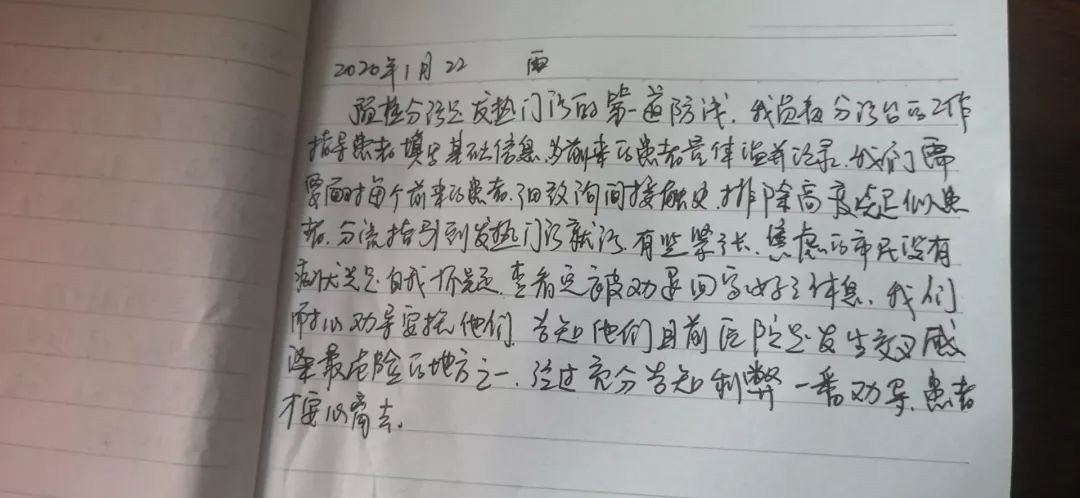 2020年1月22 雨
预检分诊是发热门诊的第一道防线,我负责分诊台的工作
指导患者填写基础信息,为前来的患者量体温并记录,我们需
要面对每个前来的患者,细致询问接触史,排除高度疑似患
者,分流指引到发热门诊就诊,有些紧张、焦虑的市民没有
症状总是自我怀疑,查看完被劝退回家好好休息,我们
耐心劝导安抚他们,告知他们目前医院是发生交叉感
染最危险的地方之一,经过充分告知利弊一番劝导,患者
才安心离去。